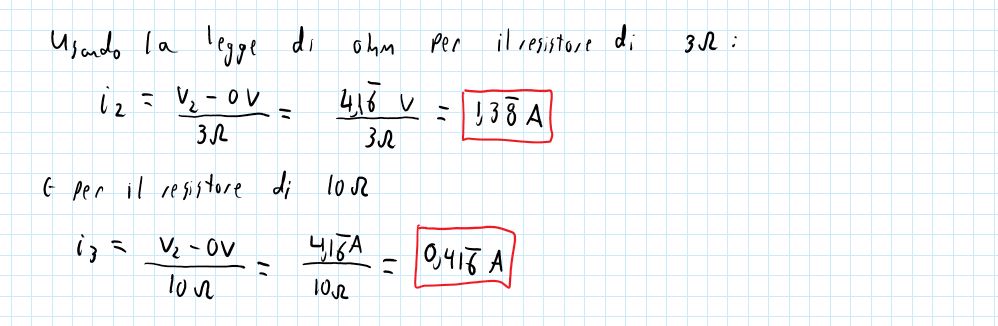 Usando la legge di ohm per il resistore di 3Ω:
i₂ = (V₂ - 0V)/3Ω = 4,16̅ V/3Ω = 1,38̅ A
E per il resistore di 10Ω
i₃ = (V₂ - 0V)/10Ω = 4,16̅ A/10Ω = 0,416̅ A